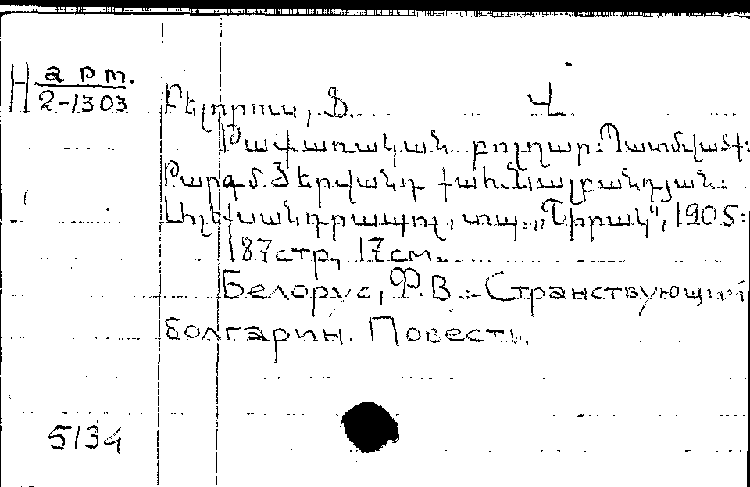 H арт.
2-1303
Բելորուս, Ֆ. Վ.
Թափառական բոլղար: Պատմվածք:
Թարգմ. Յերվանդ քահ. Նալբանդյան:
Ալեքսանդրապոլ, տպ. „Շիրակ“, 1905:
187 стр, 17см.
Белорус, Ф.В. - Странствующий
болгарин. Повесть.
5134